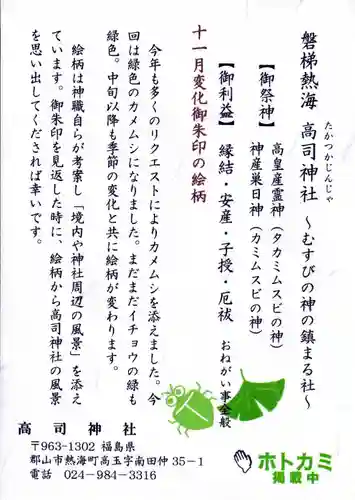 磐梯熱海 高司神社 ～むすびの神の鎮まる社～
たかつかじんじゃ
【御祭神】
高皇産霊神（タカミムスビの神）
神産巣日神（カミムスビの神）
【御利益】 縁結・安産・子授・厄祓 おねがい事全般
十一月変化御朱印の絵柄
今年も多くのリクエストによりカメムシを添えました。今
回は緑色のカメムシになりました。まだまだイチョウの緑も
緑色。中旬以降も季節の変化と共に絵柄が変わります。
絵柄は神職自らが考案し「境内や神社周辺の風景」を添え
ています。御朱印を見返した時に、絵柄から高司神社の風景
を思い出してくだされば幸いです。
高司神社
〒963-1302 福島県
郡山市熱海町高玉字南田仲35－1
電話 024-984-3316
ホトカミ
掲載中